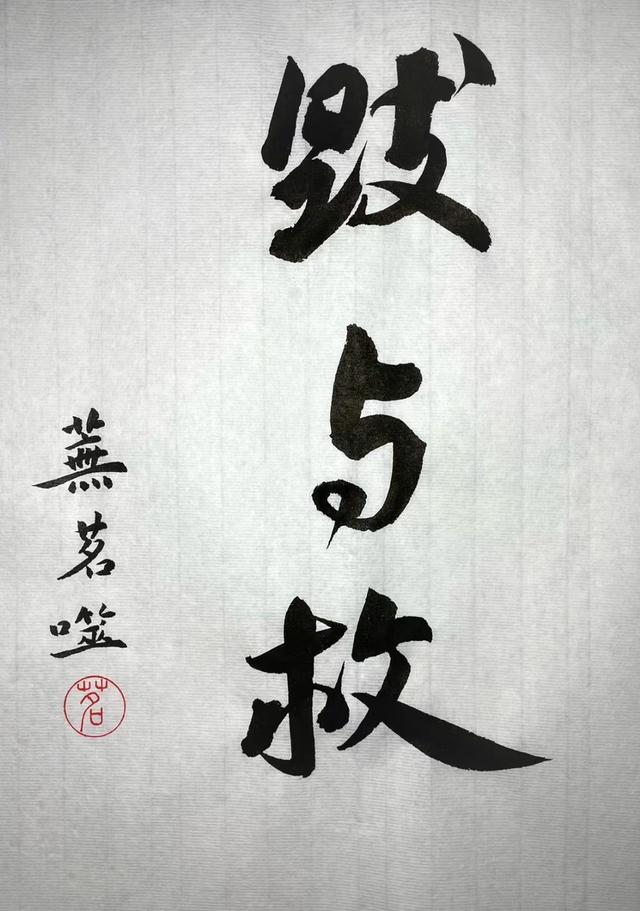 毁与救
蕪茗噬
茗